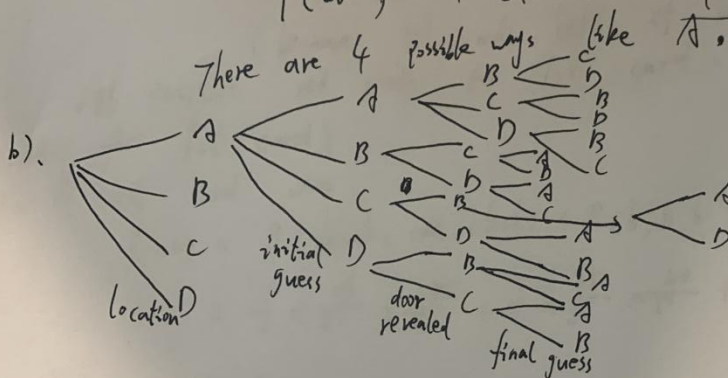 There are 4 possible ways like A.
b).
A
B
C
location D
A
B
C
initial guess D
B
C
D
C
D
B
D
B
door revealed C
C
D
B
D
B
C
A
B
A
C
A
D
A
B
A
C
A
B
final guess